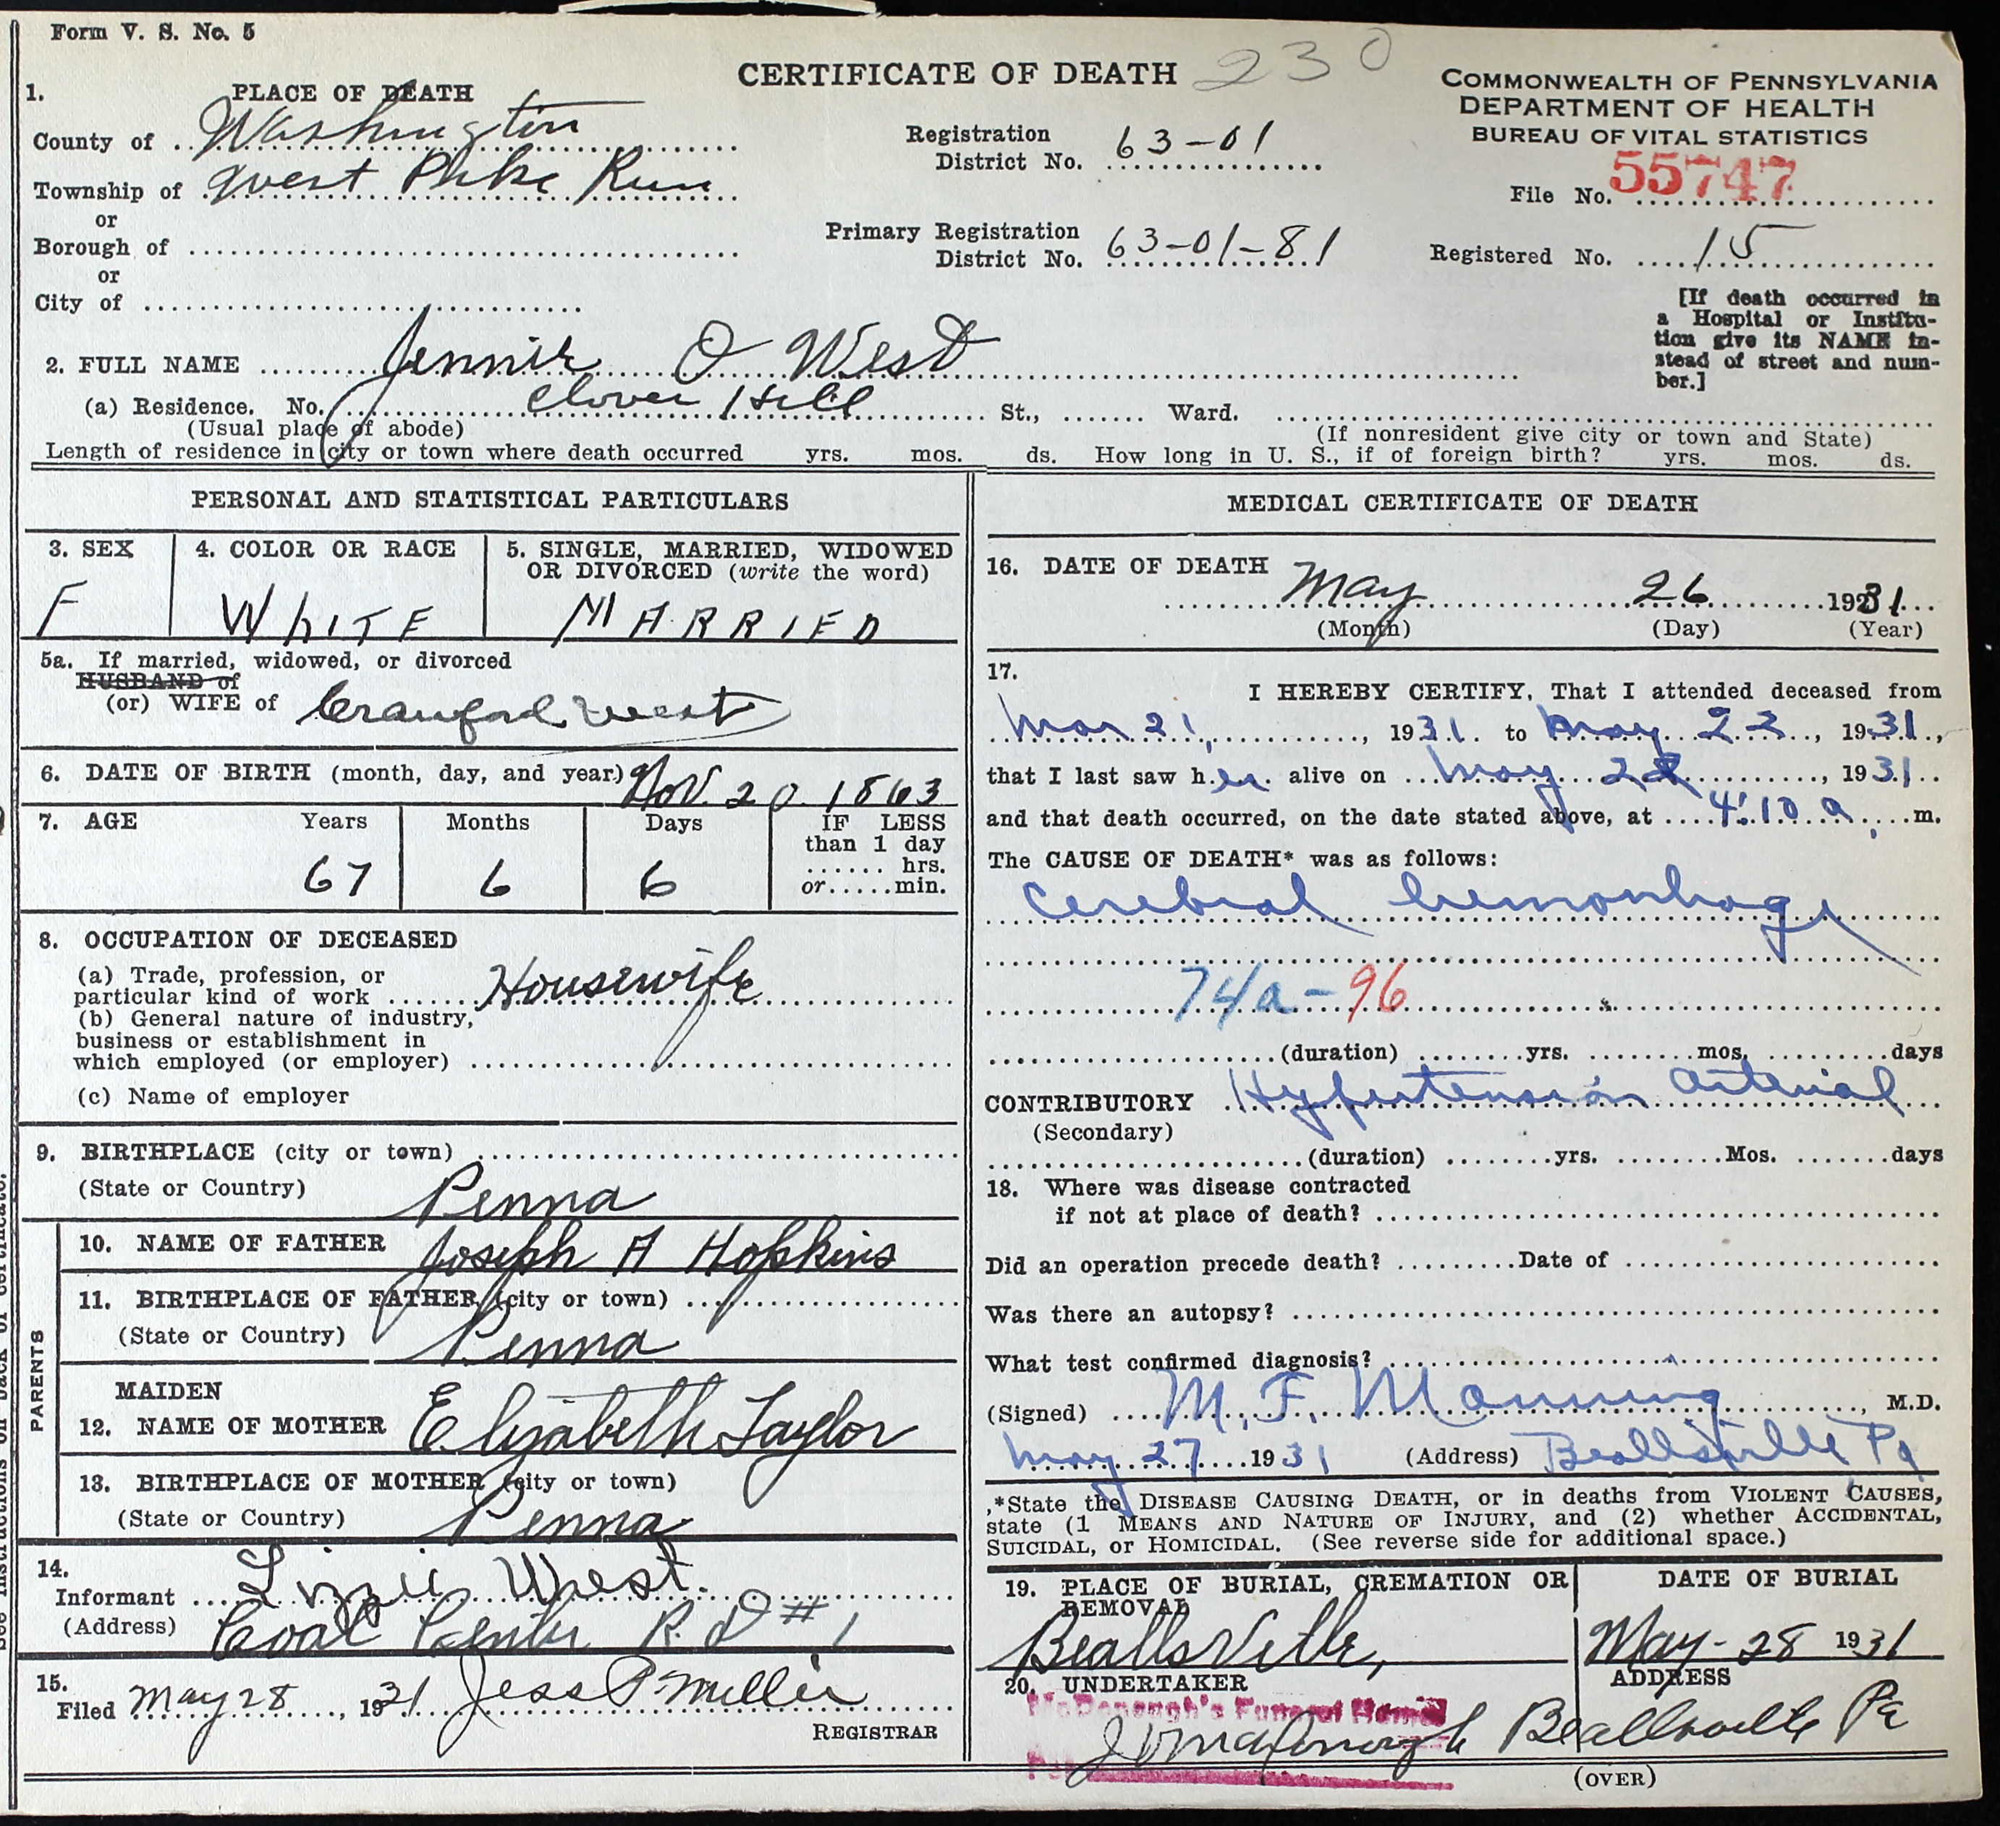 Form V. S. No. 5
CERTIFICATE OF DEATH 230
COMMONWEALTH OF PENNSYLVANIA
DEPARTMENT OF HEALTH
BUREAU OF VITAL STATISTICS
1. PLACE OF DEATH
County of Washington
Township of West Pike Run
or
Borough of
or
City of
Registration
District No. 63-01
Primary Registration
District No. 63-01-81
File No. 55747
Registered No. 15
[If death occurred in
a Hospital or Institu-
tion give its NAME in-
stead of street and num-
ber.]
2. FULL NAME Jennie O West
(a) Residence. No. Clover Hill St., Ward.
(Usual place of abode) (If nonresident give city or town and State)
Length of residence in city or town where death occurred yrs. mos. ds. How long in U. S., if of foreign birth? yrs. mos. ds.
PERSONAL AND STATISTICAL PARTICULARS
3. SEX
F
4. COLOR OR RACE
WhITE
5. SINGLE, MARRIED, WIDOWED
OR DIVORCED (write the word)
MARRIED
5a. If married, widowed, or divorced
HUSBAND of
(or) WIFE of Crawford West
6. DATE OF BIRTH (month, day, and year) Nov. 20 1863
7. AGE Years Months Days IF LESS
than 1 day
hrs.
or min.
67 6 6
8. OCCUPATION OF DECEASED
(a) Trade, profession, or
particular kind of work Housewife
(b) General nature of industry,
business or establishment in
which employed (or employer)
(c) Name of employer
9. BIRTHPLACE (city or town)
(State or Country) Penna
PARENTS
10. NAME OF FATHER Joseph A Hopkins
11. BIRTHPLACE OF FATHER (city or town)
(State or Country) Penna
MAIDEN
12. NAME OF MOTHER Elizabeth Taylor
13. BIRTHPLACE OF MOTHER (city or town)
(State or Country) Penna
14.
Informant Lizzie West.
(Address) Coal Center R. D #1
15.
Filed May 28, 1931 Jess P Miller
REGISTRAR
MEDICAL CERTIFICATE OF DEATH
16. DATE OF DEATH May 26 1931
(Month) (Day) (Year)
17.
I HEREBY CERTIFY, That I attended deceased from
Mar 21, 1931 to May 22, 1931,
that I last saw her alive on May 22, 1931
and that death occurred, on the date stated above, at 4:10 a. m.
The CAUSE OF DEATH* was as follows:
Cerebral hemorrhage
74a-96
(duration) yrs. mos. days
CONTRIBUTORY Hypertension arterial
(Secondary)
(duration) yrs. Mos. days
18. Where was disease contracted
if not at place of death?
Did an operation precede death? Date of
Was there an autopsy?
What test confirmed diagnosis?
(Signed) M. F. Manning, M.D.
May 27 1931 (Address) Beallsville Pa
*State the DISEASE CAUSING DEATH, or in deaths from VIOLENT CAUSES,
state (1 MEANS AND NATURE OF INJURY, and (2) whether ACCIDENTAL,
SUICIDAL, or HOMICIDAL. (See reverse side for additional space.)
19. PLACE OF BURIAL, CREMATION OR
REMOVAL
Beallsville,
DATE OF BURIAL
May-28 1931
20. UNDERTAKER
McDonough's Funeral Home
ADDRESS
Beallsville Pa
(OVER)